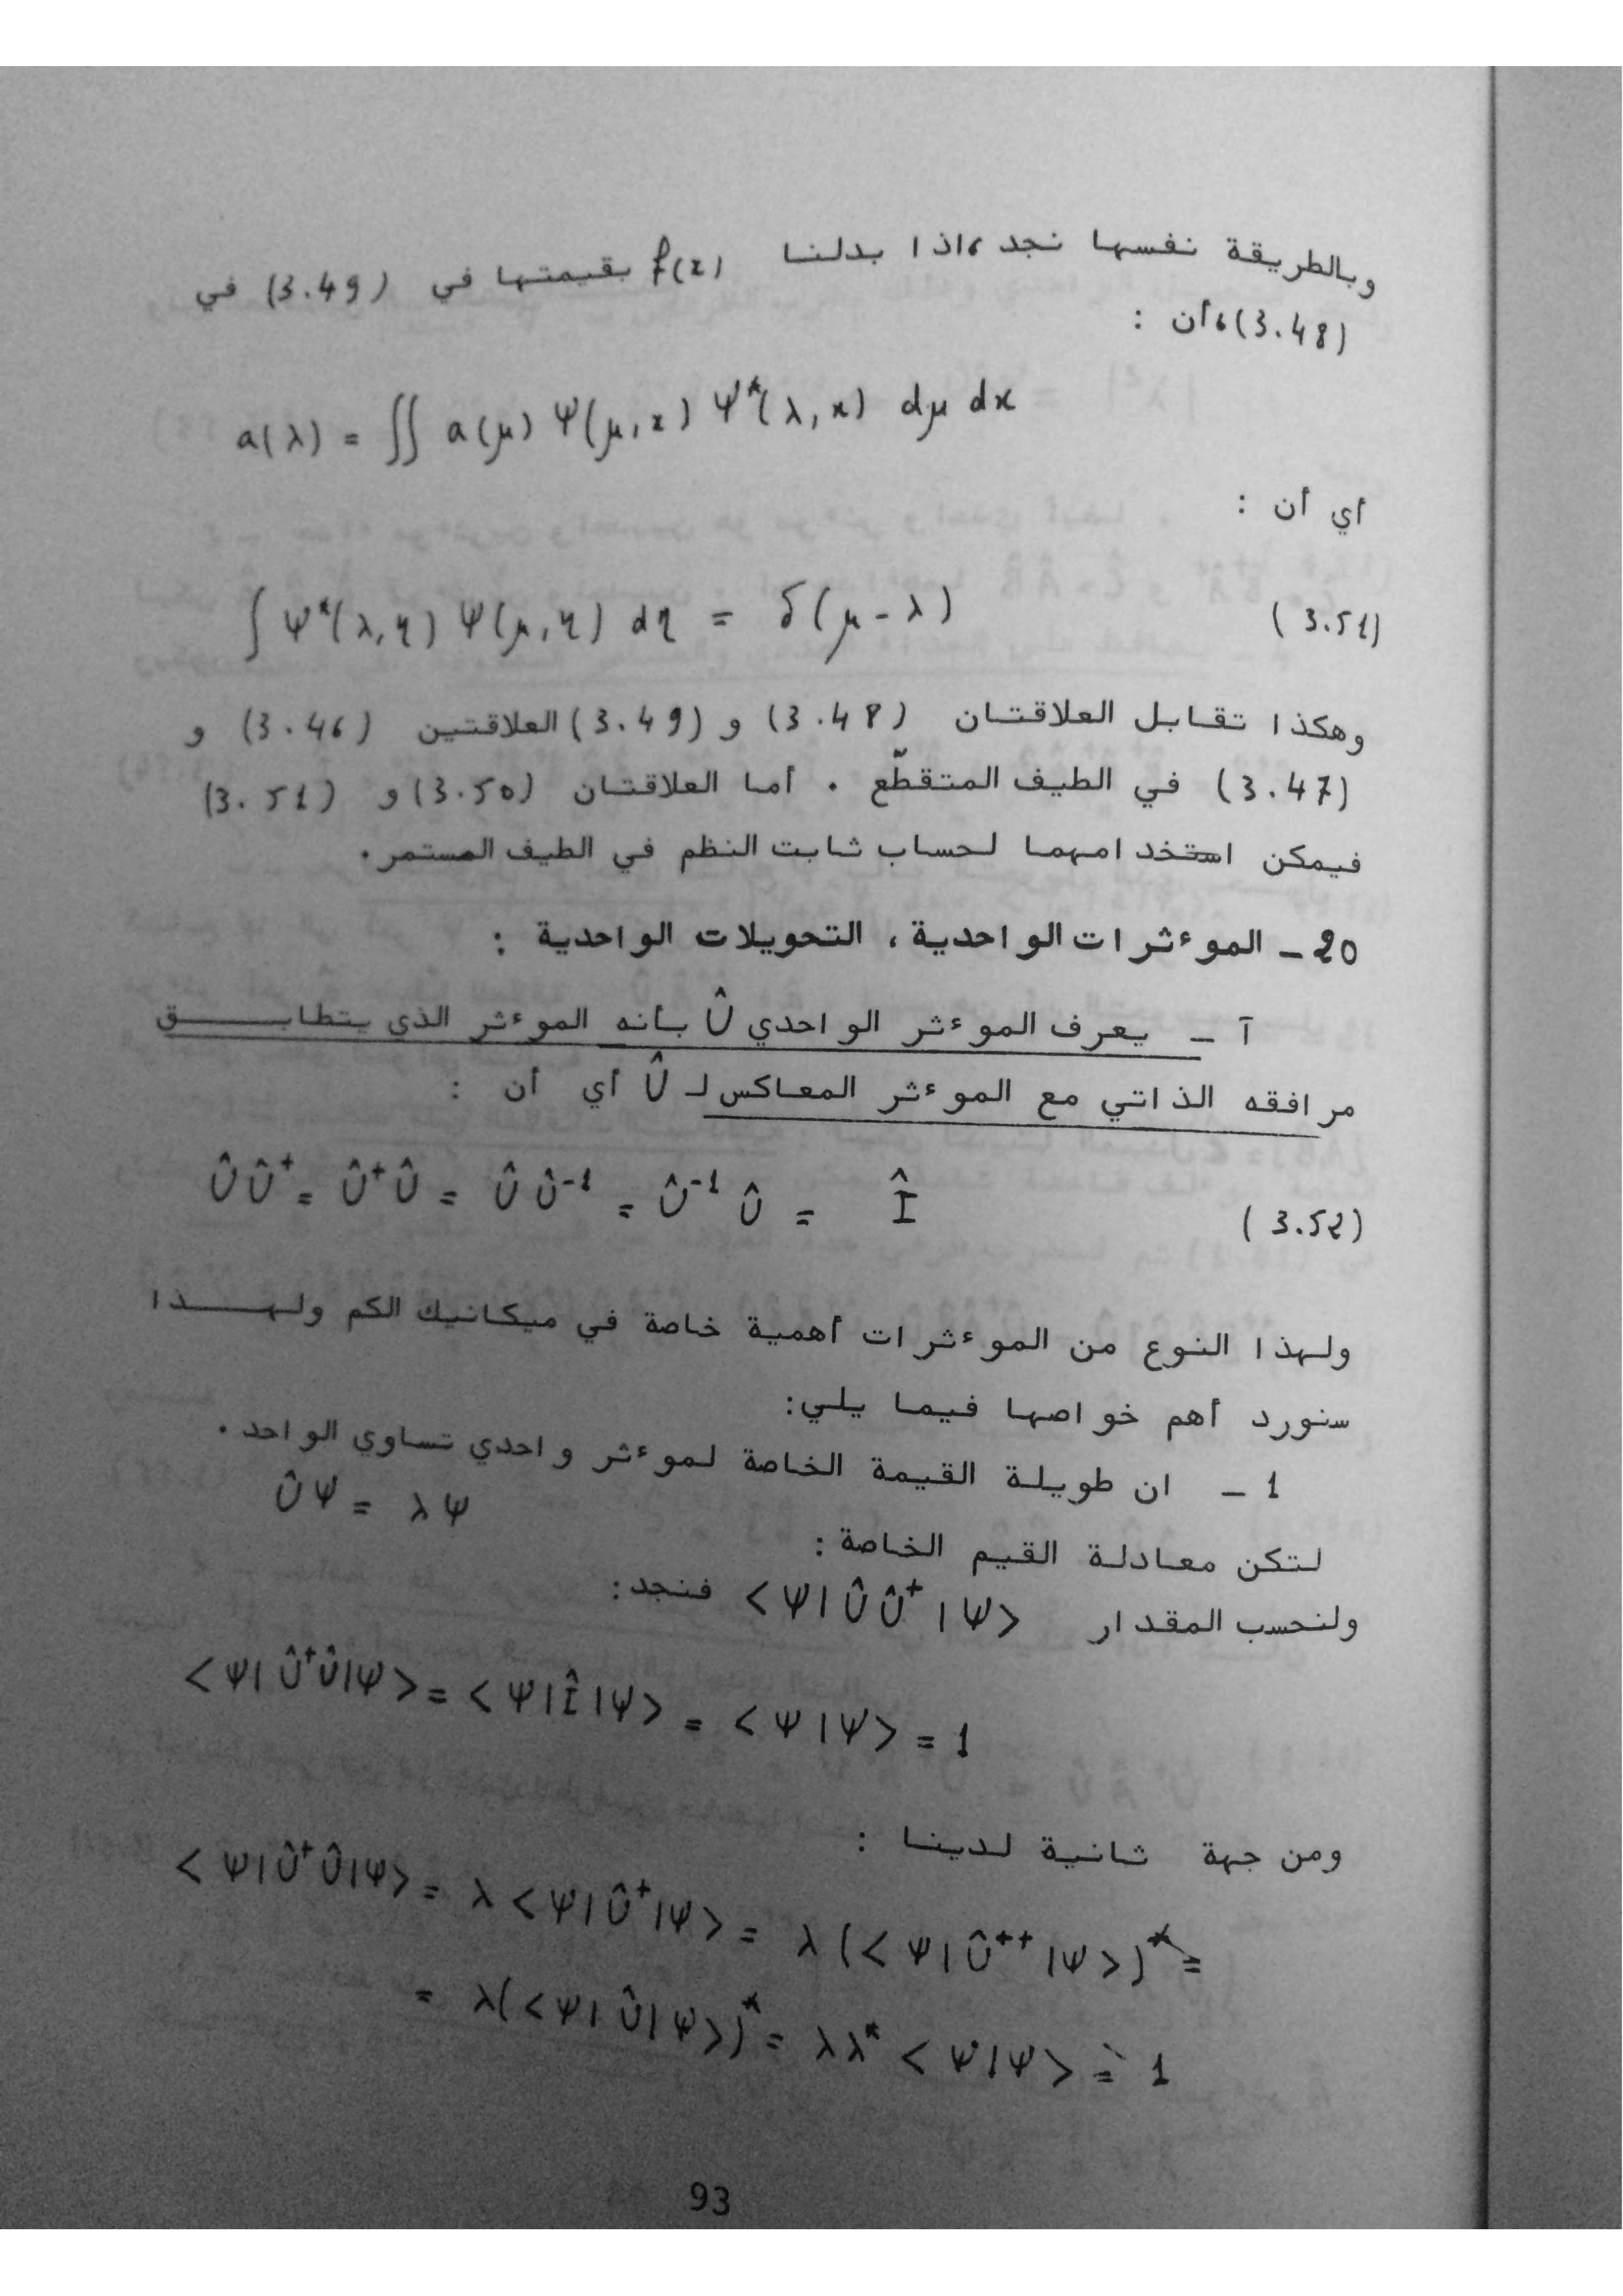 وبالطريقة نفسها نجد ،اذا بدلنا f(x) بقيمتها في (3.49) في
(3.48)،أن :
a(λ) = ∬ a(μ) Ψ(μ,x) Ψ*(λ,x) dμ dx
أي أن :
∫ Ψ*(λ,η) Ψ(μ,η) dη = δ(μ-λ) (3.51)
وهكذا تقابل العلاقتان (3.48) و (3.49) العلاقتين (3.46) و
(3.47) في الطيف المتقطّع . أما العلاقتان (3.50) و (3.51)
فيمكن استخدامهما لحساب ثابت النظم في الطيف المستمر.
20 - الموءثرات الواحدية ، التحويلات الواحدية :
آ - يعرف الموءثر الواحدي Û بأنه الموءثر الذي يتطابق
مرافقه الذاتي مع الموءثر المعاكس لـ Û أي أن :
Û Û⁺ = Û⁺ Û = Û Û⁻¹ = Û⁻¹ Û = Î (3.52)
ولهذا النوع من الموءثرات أهمية خاصة في ميكانيك الكم ولهذا
سنورد أهم خواصها فيما يلي:
1 - ان طويلة القيمة الخاصة لموءثر واحدي تساوي الواحد.
لتكن معادلة القيم الخاصة : ÛΨ = λΨ
ولنحسب المقدار <Ψ|Û Û⁺|Ψ> فنجد:
<Ψ|Û⁺Û|Ψ> = <Ψ|Î|Ψ> = <Ψ|Ψ> = 1
ومن جهة ثانية لدينا :
<Ψ|Û⁺Û|Ψ> = λ<Ψ|Û⁺|Ψ> = λ(<Ψ|Û⁺⁺|Ψ>)* =
= λ(<Ψ|Û|Ψ>)* = λλ* <Ψ|Ψ> = 1
93